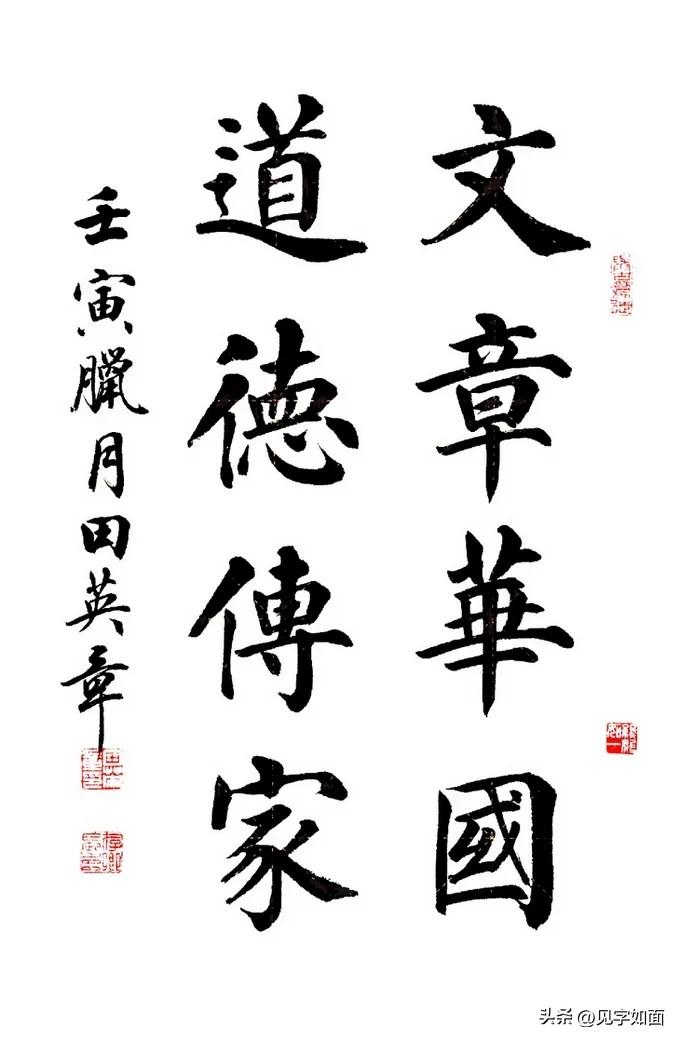 文章華國
道德傳家
壬寅臘月田英章
头条 @见字如面